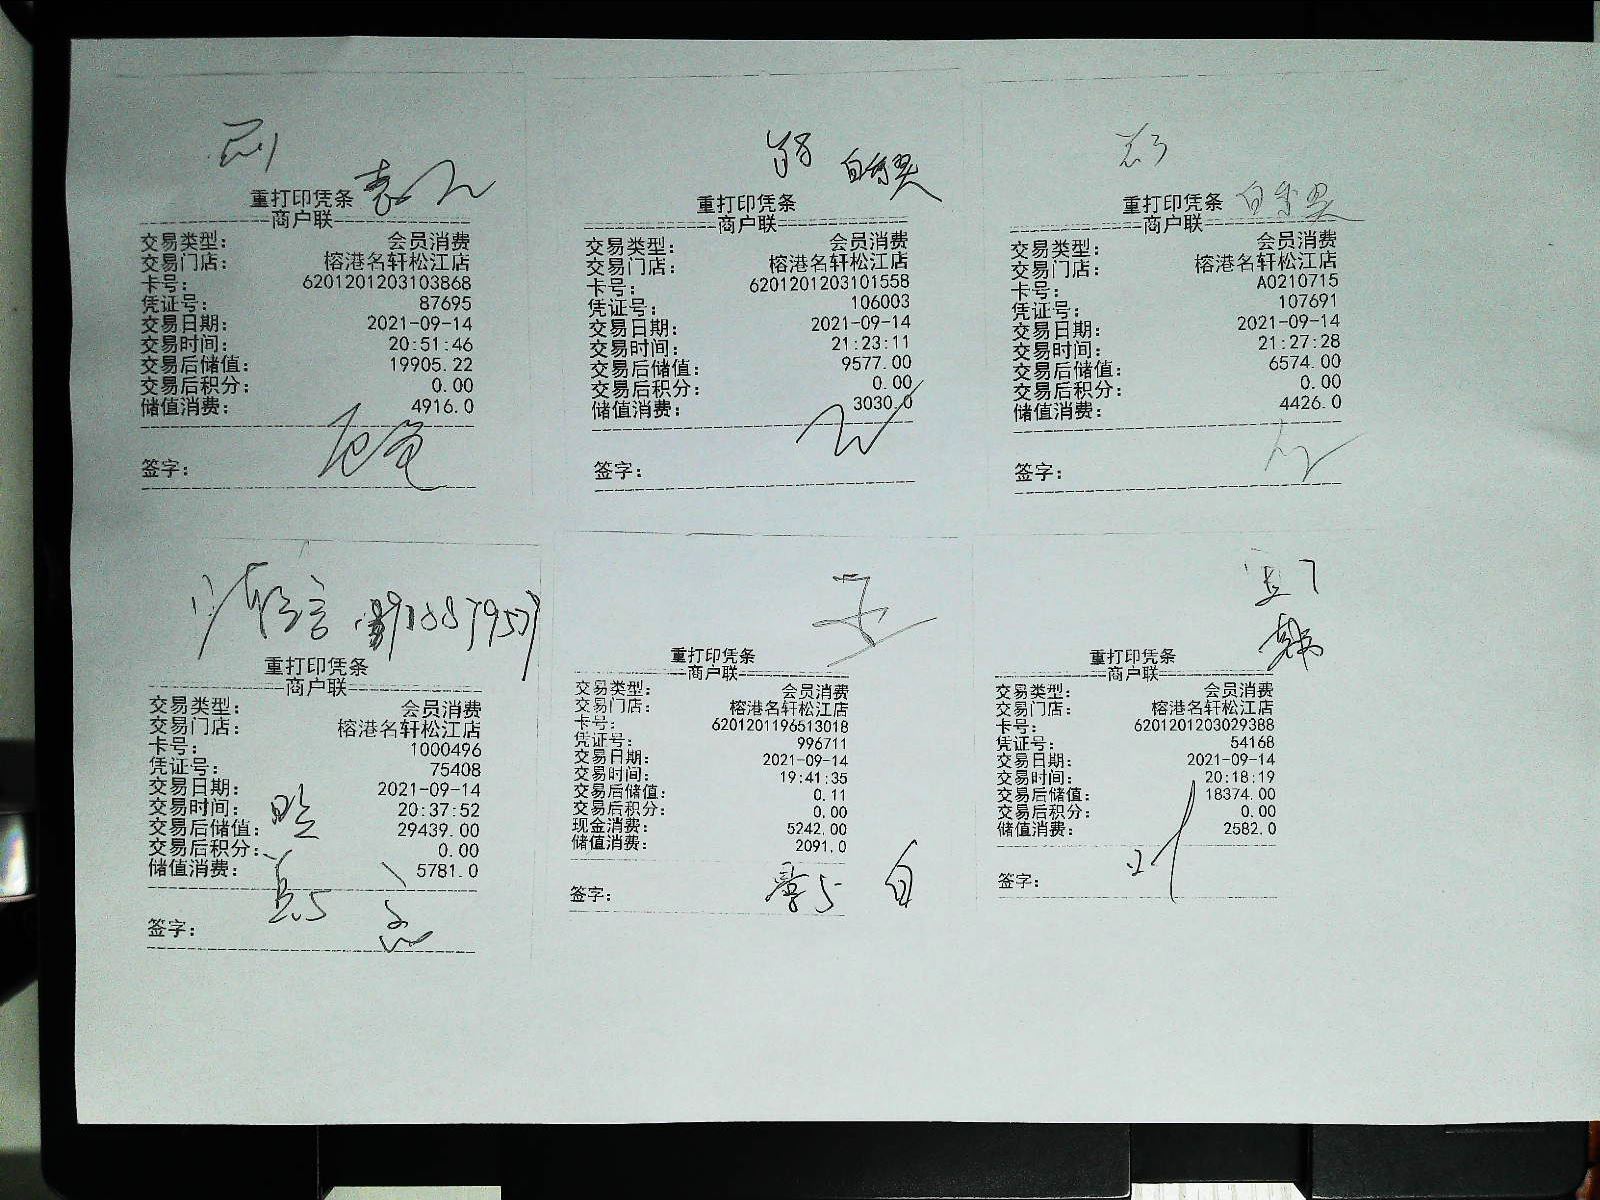 重打印凭条
商户联
交易类型： 会员消费
交易门店： 榕港名轩松江店
卡号： 6201201203103868
凭证号： 87695
交易日期： 2021-09-14
交易时间： 20:51:46
交易后储值： 19905.22
交易后积分： 0.00
储值消费： 4916.0
签字：
重打印凭条
商户联
交易类型： 会员消费
交易门店： 榕港名轩松江店
卡号： 6201201203101558
凭证号： 106003
交易日期： 2021-09-14
交易时间： 21:23:11
交易后储值： 9577.00
交易后积分： 0.00
储值消费： 3030.0
签字：
重打印凭条
商户联
交易类型： 会员消费
交易门店： 榕港名轩松江店
卡号： A0210715
凭证号： 107691
交易日期： 2021-09-14
交易时间： 21:27:28
交易后储值： 6574.00
交易后积分： 0.00
储值消费： 4426.0
签字：
重打印凭条
商户联
交易类型： 会员消费
交易门店： 榕港名轩松江店
卡号： 1000496
凭证号： 75408
交易日期： 2021-09-14
交易时间： 20:37:52
交易后储值： 29439.00
交易后积分： 0.00
储值消费： 5781.0
签字：
重打印凭条
商户联
交易类型： 会员消费
交易门店： 榕港名轩松江店
卡号： 6201201196513018
凭证号： 996711
交易日期： 2021-09-14
交易时间： 19:41:35
交易后储值： 0.11
交易后积分： 0.00
现金消费： 5242.00
储值消费： 2091.0
签字：
重打印凭条
商户联
交易类型： 会员消费
交易门店： 榕港名轩松江店
卡号： 6201201203029388
凭证号： 54168
交易日期： 2021-09-14
交易时间： 20:18:19
交易后储值： 18374.00
交易后积分： 0.00
储值消费： 2582.0
签字：